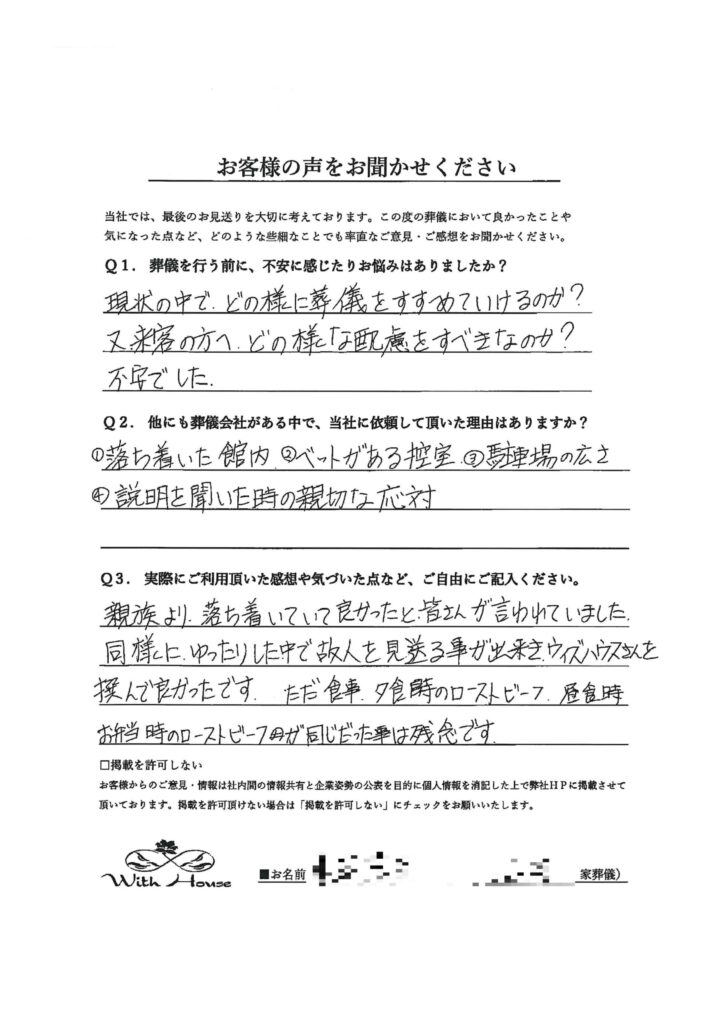 お客様の声をお聞かせください
当社では、最後のお見送りを大切に考えております。この度の葬儀において良かったことや
気になった点など、どのような些細なことでも率直なご意見・ご感想をお聞かせください。
Q1. 葬儀を行う前に、不安に感じたりお悩みはありましたか？
現状の中で、どの様に葬儀をすすめていけるのか？
又来客の方へ、どの様な配慮をすべきなのか？
不安でした.
Q2. 他にも葬儀会社がある中で、当社に依頼して頂いた理由はありますか？
①落ち着いた館内 ②ベットがある控室 ③駐車場の広さ
④説明を聞いた時の親切な応対
Q3. 実際にご利用頂いた感想や気づいた点など、ご自由にご記入ください。
親族より、落ち着いていて良かったと、皆さんが言われていました.
同様に、ゆったりした中で故人を見送る事が出来き、ウィズハウスさんを
選んで良かったです. ただ食事、夕食時のローストビーフ、昼食時
お弁当時のローストビーフが同じだった事は残念です.
□掲載を許可しない
お客様からのご意見・情報は社内間の情報共有と企業姿勢の公表を目的に個人情報を消記した上で弊社HPに掲載させて
頂いております。掲載を許可頂けない場合は「掲載を許可しない」にチェックをお願いいたします。
With House
■お名前 家葬儀）